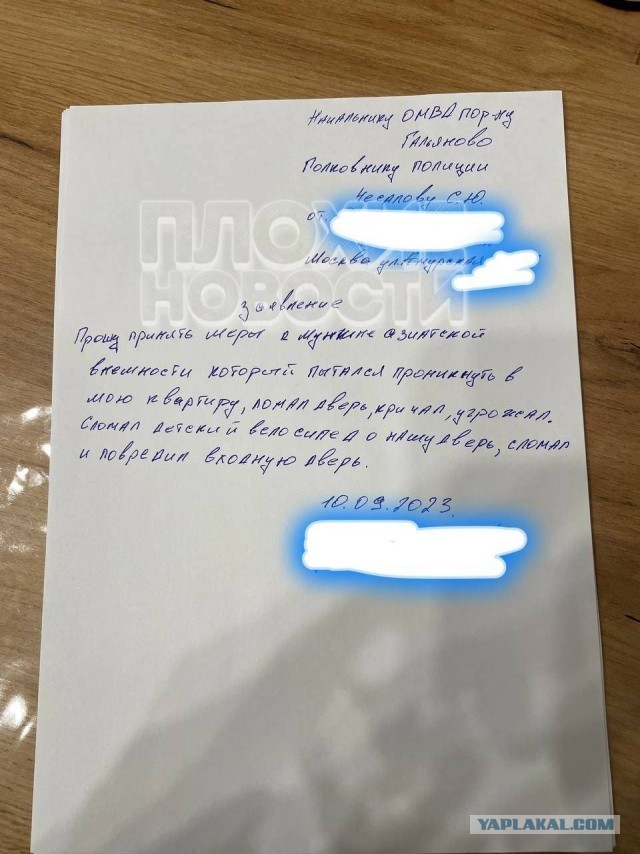 Начальнику ОМВД по р-ну
Гальяново
Полковнику полиции
Чесалову С.Ю.
от
Москва ул.Амурская
Заявление
Прошу принять меры к мужчине азиатской
внешности который пытался проникнуть в
мою квартиру, ломал дверь, кричал, угрожал.
Сломал детский велосипед о нашу дверь, сломал
и повредил входную дверь.
10.09.2023.
ПЛОХИЕ
НОВОСТИ
YAPLAKAL.COM